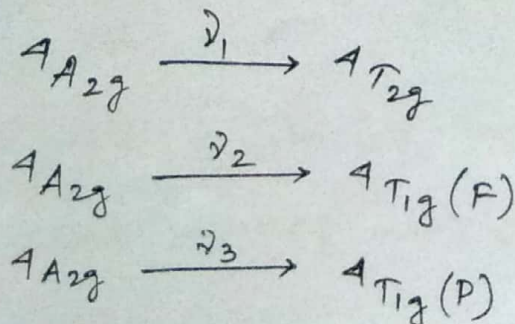 ⁴A₂g —ν₁→ ⁴T₂g
⁴A₂g —ν₂→ ⁴T₁g (F)
⁴A₂g —ν₃→ ⁴T₁g (P)